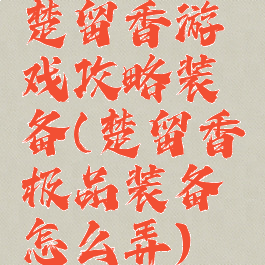 楚留香游
戏攻略装
备(楚留香
极品装备
怎么弄)